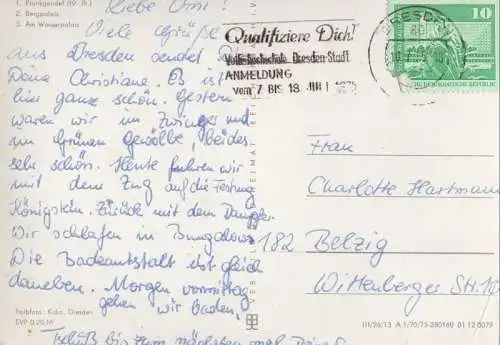 1. Prunkgondel (19. Jh.)
2. Bergpalais
3. Am Wasserpalais
Liebe Omi!
Viele Grüße
aus Dresden sendet Dir
Deine Christiane. Es ist
hier ganze schön. Gestern
waren wir im Zwinger und
im Grünen Gewölbe, beides
sehr schön. Heute fuhren wir
mit dem Zug auf die Festung
Königstein. Zurück mit dem Dampfer.
Wir schlafen in Bungalows
Die Badeanstalt ist gleich
daneben. Morgen vormittag
gehen wir baden.
Tschüß bis zum nächsten mal
Farbfoto: Kaka, Dresden
EVP 0,20 M
Qualifiziere Dich!
Volkshochschule Dresden-Stadt
ANMELDUNG
vom 7. BIS 18. JUNI
DRESDEN
10
DEUTSCHE DEMOKRATISCHE REPUBLIK
Frau
Charlotte Hartmann
182 Belzig
Wittenberger Str. 10
III/26/13 A 1/70/75-280160 01 12 0079